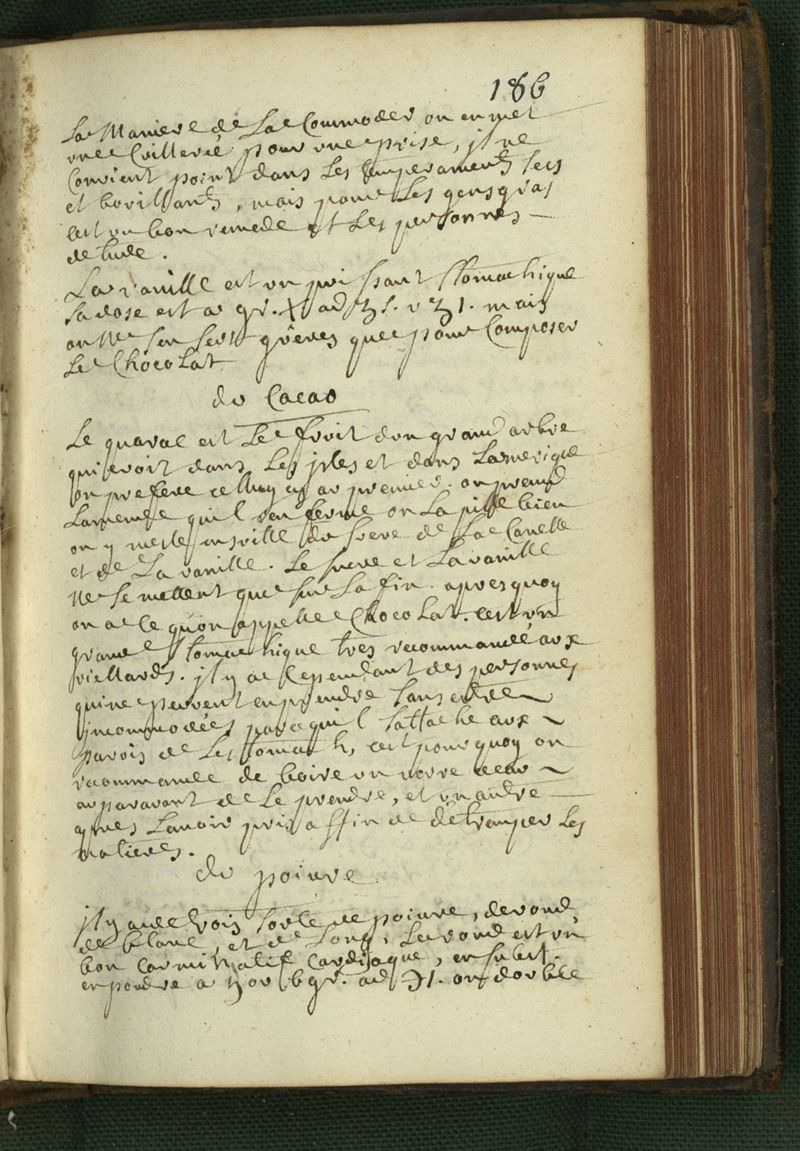 186
La Maniere de La Commoder on en met
une Cuilleréé pour une prise, jl ne
Convient point dans Les temperaments secs
et bovillants, mais pour Les gens gras
cest un bon remede et Les personnes
detude.
La vanille est un puissant stomachique
sa dose est a gr. X ad ʒ s. v ʒ 1. mais
on ne sen sert gueres que pour Composer
Le Chocolat
du Cacao
Le quacac est Le fruit dun grand arbre
qui croit dans Les jsles et dans Lamerique
on prefere celluy cy au premier. on prend
Lamende quil renferme on La pille bien
on y mesle ensville du sucre de La Canelle
et de La vanille. Le sucre et La vanille
Ne se mettent que sur La fin. apres quoy
on a ce quon appelle Chocolat. cest un
grand stomachique tres recommandé aux
viellards. jl y a Cependant des personnes
qui ne peuvent en prendre sans estre
jncommodées parcequil sattache aux
parois de Lestomach, cest pourquoy on
recommande de boire un verre deau
auparavant de Le prendre, et un autre
apres Lauoir pris affin de détremper Les
matieres.
du poivre
jl y a de trois sorte de poivre, de rond,
de blanc, et de Long, Le rond est un
bon carminatif Cardiaque,
en poudre a gr. ad ℈1. on dorbee